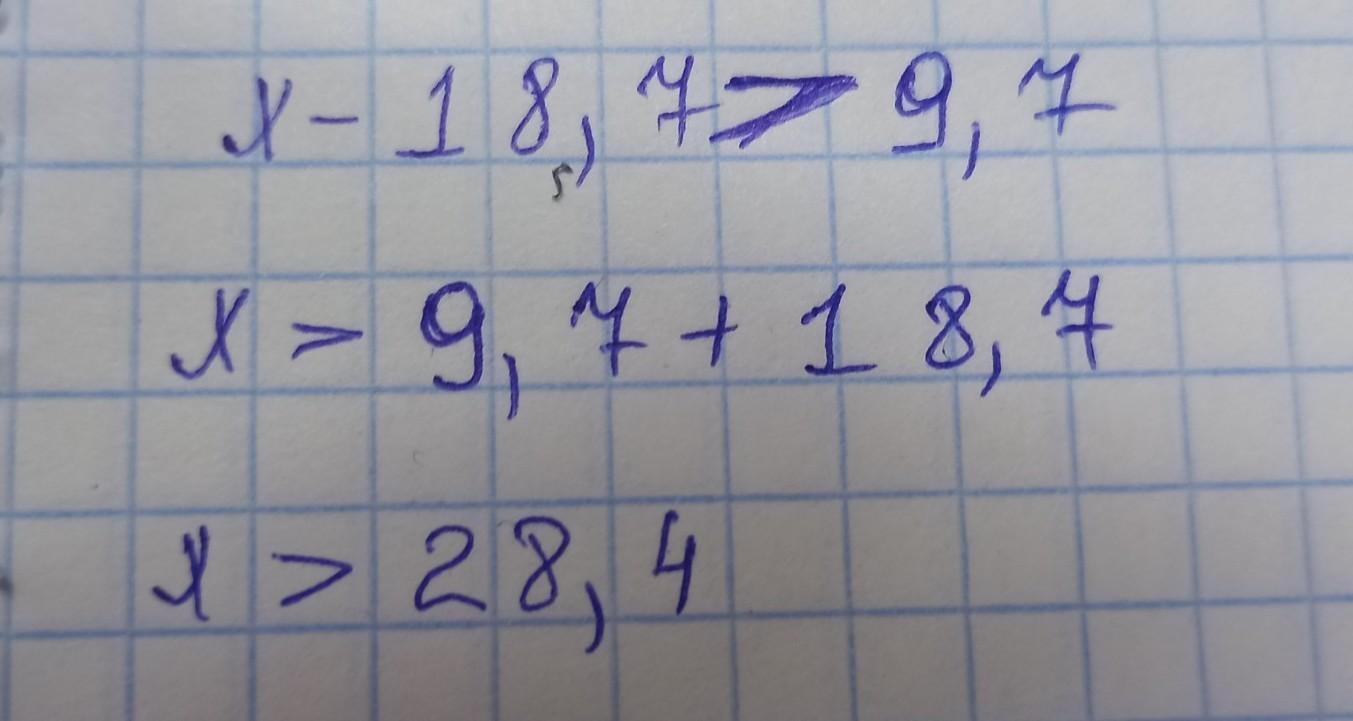 x - 18,7 > 9,7
x > 9,7 + 18,7
x > 28,4